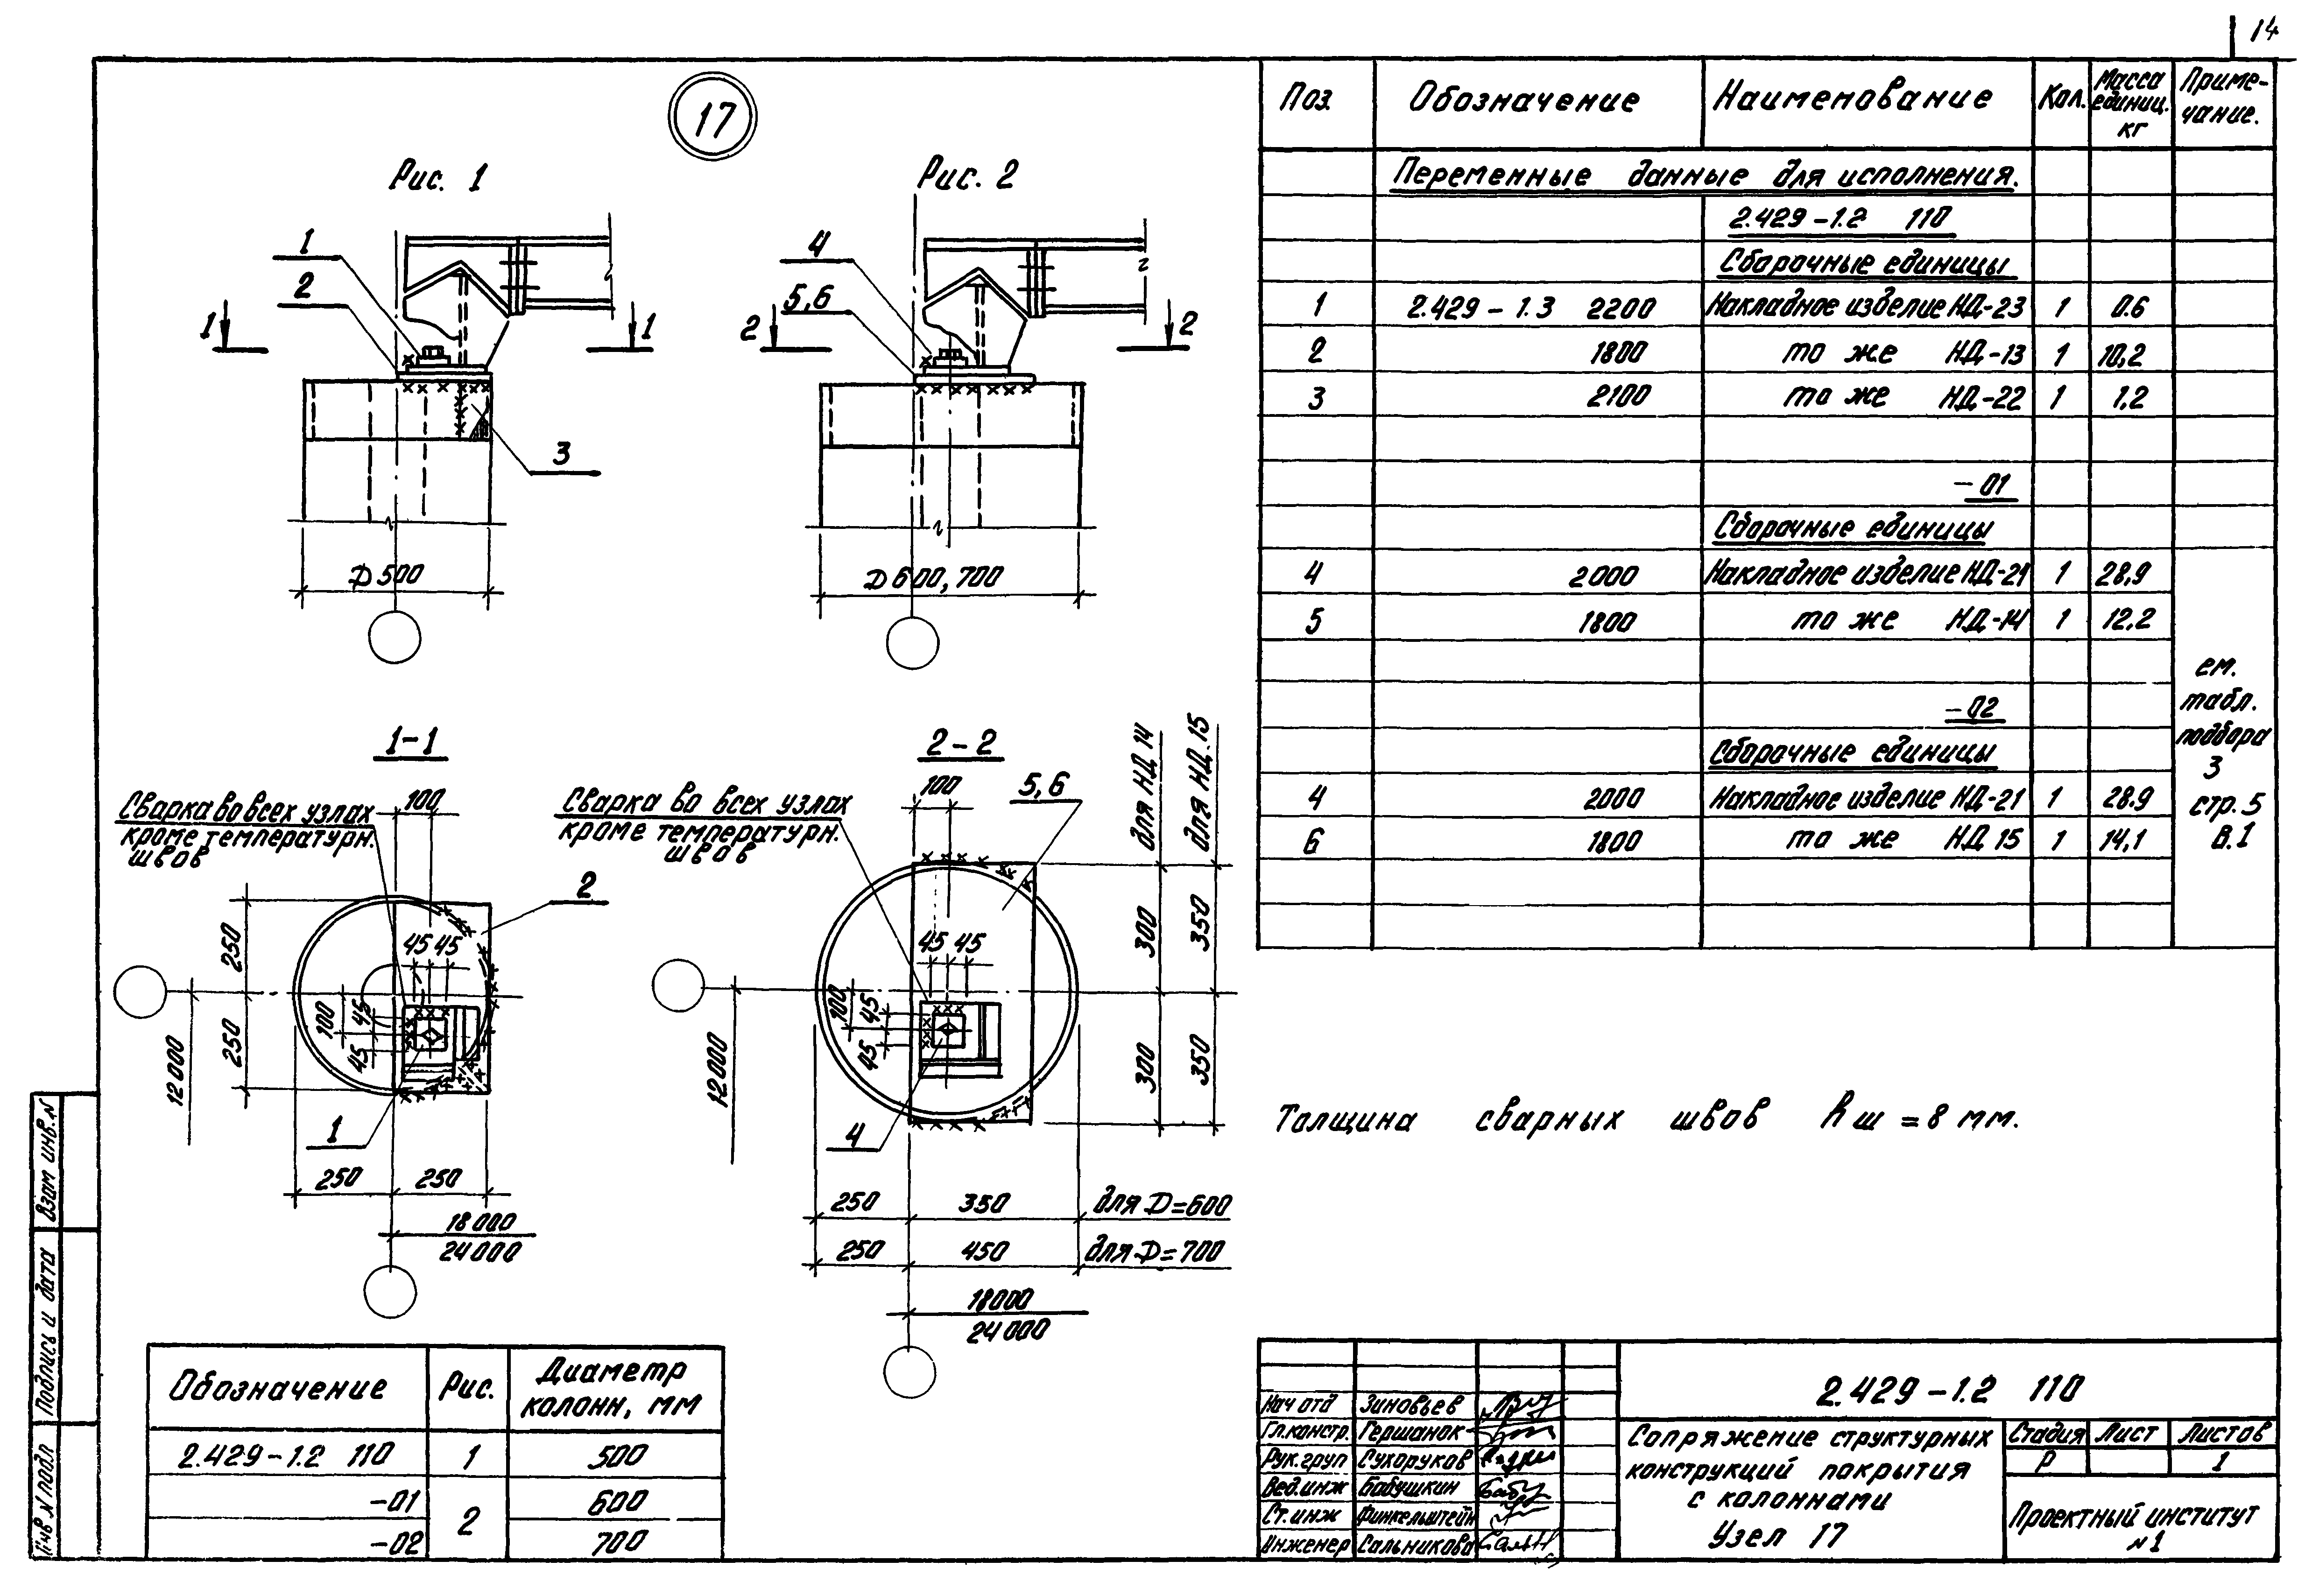 14
17
Рис. 1
Рис. 2
1
2
1
1
3
D 500
4
5,6
2
2
D 600, 700
1-1
Сварка во всех узлах
кроме температурн.
швов
100
2
250
250
45 45
100
45
45
12 000
1
250
250
18 000
24 000
2-2
Сварка во всех узлах
кроме температурн.
швов
100
5,6
для НД 14
для НД.15
45 45
100
45
45
300
350
300
350
12 000
4
250 350 для D=600
250 450 для D=700
18000
24 000
Обозначение Рис. Диаметр
колонн, мм
2.429-1.2 110 1 500
-01 2 600
-02 700
Поз. Обозначение Наименование Кол. Масса единиц. кг Приме-
чание.
Переменные данные для исполнения.
2.429-1.2 110
Сборочные единицы
1 2.429-1.3 2200 Накладное изделие НД-23 1 0.6
2 1800 то же НД-13 1 10,2
3 2100 то же НД-22 1 1,2
-01
Сборочные единицы
4 2000 Накладное изделие НД-21 1 28,9
5 1800 то же НД-14 1 12,2
-02
Сборочные единицы
4 2000 Накладное изделие НД-21 1 28.9
6 1800 то же НД 15 1 14,1
ем.
табл.
подбора
3
стр. 5
в.1
Толщина сварных швов hш = 8 мм.
Нач отд Зиновьев
Гл.констр. Гершанок
Рук.груп Сухоруков
Вед.инж Бабушкин
Ст.инж Финкельштейн
Инженер Сальникова
2.429-1.2 110
Сопряжение структурных
конструкций покрытия
с колоннами
Узел 17
Стадия Лист Листов
Р 1
Проектный институт
N1
Взам инв.N
Подпись и дата
Инв N подл